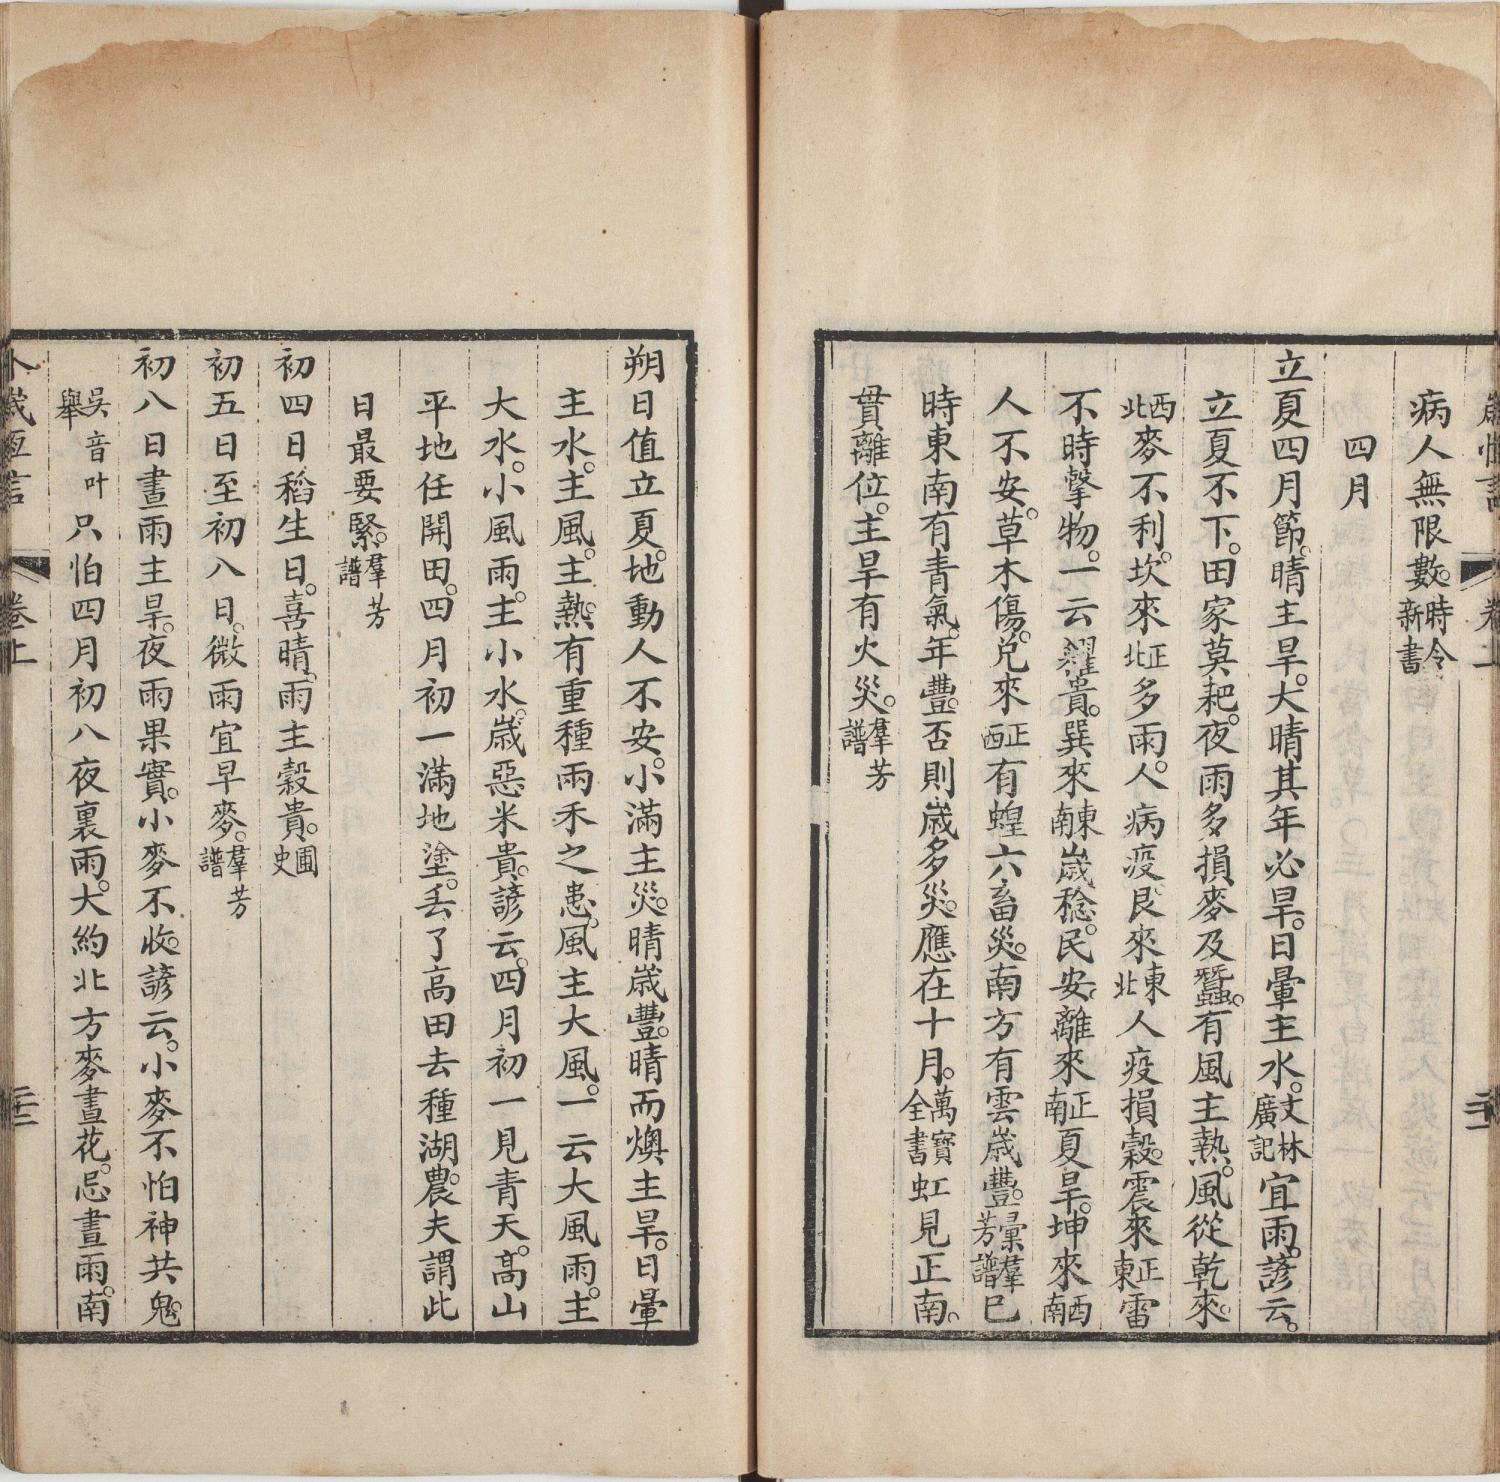 病人無限數。時令新書
四月
立夏四月節。晴主旱。大晴其年必旱。日暈主水。文林廣記宜雨。諺云。
立夏不下。田家莫耙。夜雨多損麥及蠶。有風主熱。風從乾來。
西北麥不利。坎來正北多雨。人病疫。艮來東北人疫損穀。震來正東雷
不時擊物。一云糴貴。巽來東南歲稔。民安。離來正南夏旱。坤來西南
人不安。草木傷。兌來正西有蝗六畜災。南方有雲歲豐。彙羣芳譜巳
時東南有青氣。年豐。否則歲多災。應在十月。萬寶全書虹見正南。
貫離位。主旱有火災。羣芳譜
朔日值立夏。地動人不安。小滿主災。晴歲豐。晴而燠主旱。日暈
主水。主風。主熱。有重種兩禾之患。風主大風。一云大風雨。主
大水。小風雨。主小水。歲惡米貴。諺云。四月初一見青天。高山
平地任開田。四月初一滿地塗。丢了高田去種湖。農夫謂此
日最要緊。羣芳譜
初四日稻生日。喜晴。雨主穀貴。圃史
初五日至初八日。微雨宜早麥。羣芳譜
初八日晝雨主旱。夜雨果實。小麥不收。諺云。小麥不怕神共鬼。
吳音叶舉只怕四月初八夜裏雨。大約北方麥晝花。忌晝雨。南
卜歲恆言 卷上 二十二